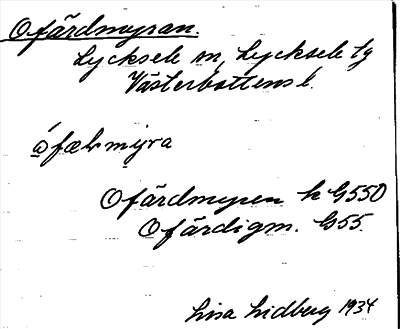 Ofärdmyran.
Lycksele sn, Lycksele tg
Västerbottens l.
ófælmyra
Ofärdmyren k G550
Ofärdigm. G55.
Lisa Lidberg 1934